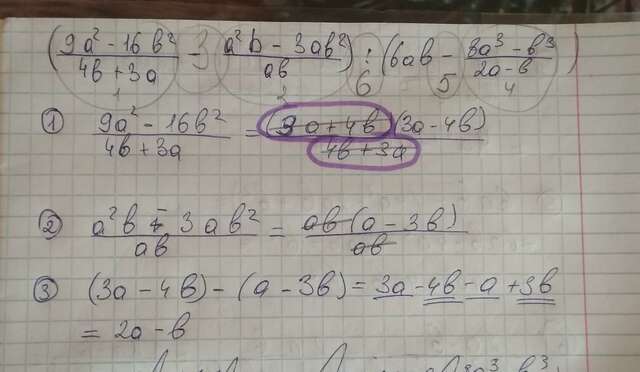 ((9a² - 16b²)/(4b + 3a) - (a²b - 3ab²)/(ab)) : (6ab - (8a³ - b³)/(2a - b))
3 6 5
1 2 4
① (9a² - 16b²)/(4b + 3a) = ((3a + 4b)(3a - 4b))/(4b + 3a)
② (a²b - 3ab²)/(ab) = (ab(a - 3b))/(ab)
③ (3a - 4b) - (a - 3b) = 3a - 4b - a + 3b
= 2a - b